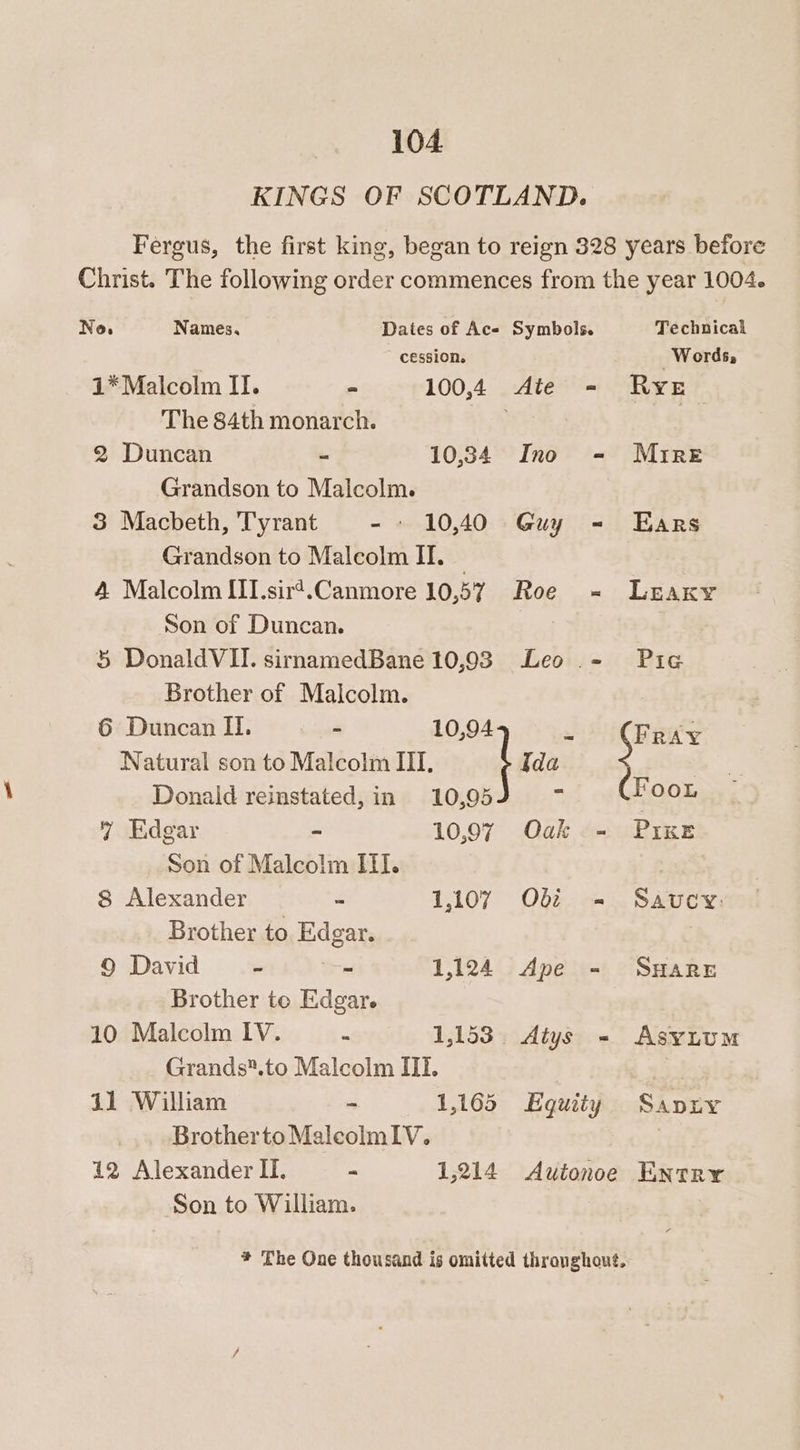 104
KINGS OF SCOTLAND.
Fergus, the first king, began to reign 328 years before
Christ. The following order commences from the year 1004.
No. Names. Dates of Ac- Symbols. Technical
cession. Words,
1*Malcolm II. - 100,4 Ate - RYE
The 84th monarch.
2 Duncan - 10,34 Ino - MIRE
Grandson to Malcolm.
3 Macbeth, Tyrant - - 10,40 Guy - EARS
Grandson to Malcolm II.
4 Malcolm III.sird.Canmore 10,57 Roe - LEAKY
Son of Duncan.
5 DonaldVII. sirnamedBane 10,93 Leo - PIG
Brother of Malcolm.
6 Duncan II. - 10,94 - FRAY
Natural son to Malcolm III. Ida
Donald reinstated, in 10,95 - FOOL
7 Edgar - 10,97 Oak - PIKE
Son of Malcolm III.
8 Alexander - 1,107 Obi - SAUCY
Brother to Edgar.
9 David - - 1,124 Ape - SHARE
Brother to Edgar.
10 Malcolm IV. - 1,153 Atys - ASYLUM
Grandsn.to Malcolm III.
11 William - 1,165 Equity SADLY
BrothertoMalcolmIV.
12 Alexander II. - 1,214 Autonoe ENTRY
Son to William.
* The One thousand is omitted throughout.